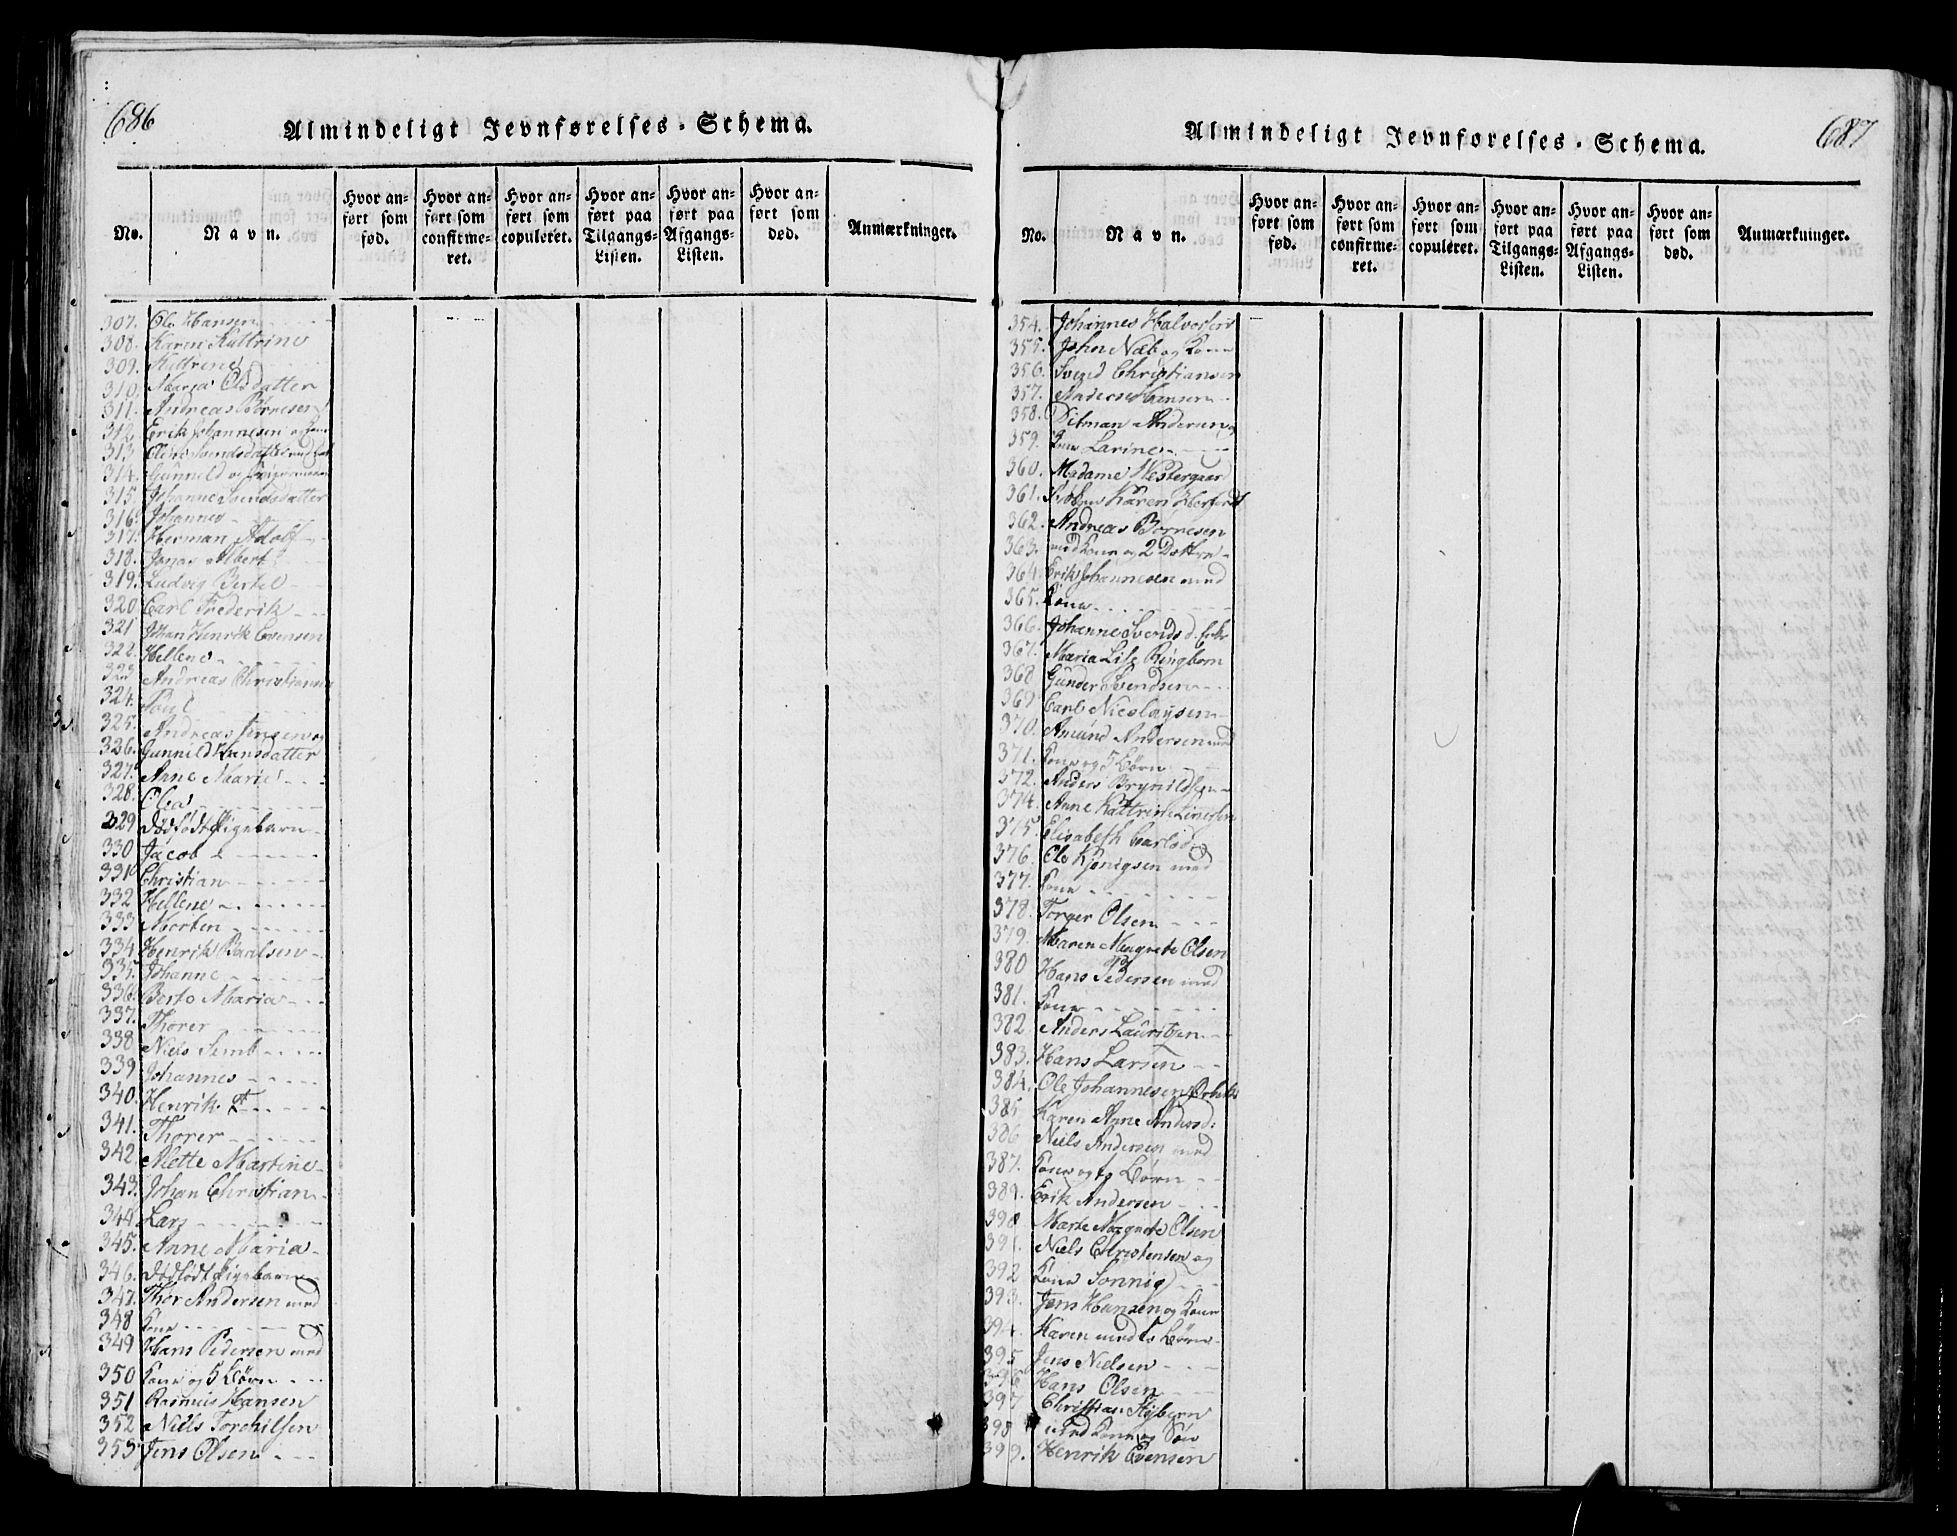 686
Almindeligt Jevnførelses-Schema.
No.
Navn.
Hvor anført som fød.
Hvor anført som confirmeret.
Hvor anført som copuleret.
Hvor anført paa Tilgangs-Listen.
Hvor anført paa Afgangs-Listen.
Hvor anført som død.
Anmærkninger.
307. Ole Hansen
308. Karen Kattrine
309. Kattrine
310. Maria Olsdatter
311. Andreas Børresen
312 Erik Johannesen
313
314. Gunnild
315. Johanne Svendsdatter
316. Johannes
317. Herman Adolf
318. Jonas Albert
319. Ludvig Bertel
320 Carl Frederik
321 Johan Henrik Evensen
322. Hellene
323 Andreas Christiansen
324. Poul
325. Andreas Jensen og
326. Gunnild Hansdatter
327. Anne Marie
328. Olea
329 dødfødt Pigebarn
330 Jacob
331 Christian
332 Hellene
333 Morten
334 Henrik Paulsen
335. Johanne
336. Berte Maria
337. Thorer
338 Niels Semb
339 Johannes
340. Henrik
341. Thorer
342. Mette Martine
343. Johan Christian
344 Lars
345. Anne Maria
346. dødfødt Pigebarn
347. Thor Andersen med
348 Kone
349 Hans Pedersen med
350 Kone og 5 Børn
351 Rasmus Hansen
352 Niels Torchilsen
353 Jens Olsen
687
Almindeligt Jevnførelses-Schema.
No.
Navn.
Hvor anført som fød.
Hvor anført som confirmeret.
Hvor anført som copuleret.
Hvor anført paa Tilgangs-Listen.
Hvor anført paa Afgangs-Listen.
Hvor anført som død.
Anmærkninger.
354. Johannes Halvorsen
355. John Næb og Kone
356. Svend Christiansen
357. Anders Hansen
358. Ditman Andersen og
359. Kone Larine
360. Madame Westergaar
361. Karen
362. Andreas Børresen
363. med Kone og 2 Døttre
364. Erik Johannesen med
365. Kone
366. Johanne Svends d.
367. Maria Lise Ringbom
368 Gunder Svendsen
369 Carl Nicolaysen
370. Amund Andersen med
371. Kone og 5 Børn
372. Anders Brynildsen
374. Anne Kattrine
375. Elisabeth Carlsd.
376. Ole med
377. Kone
378. Torger Olsen
379. Maren Magrete Olsen
380 Hans Pedersen med
381. Kone
382 Anders Lauritzen
383. Hans Larsen
384. Ole Johannesen
385 Karen Anne
386 Niels Andersen med
387. Kone og Børn
389. Erik Andersen
390 Marte Magrete Olsen
391. Niels Christensen og
392 Kone Sonnig
393. Jens Hansen og Kone
394. Karen med Børn
395 Jens Nielsen
396 Hans Olsen
397 Christian
398 med Kone og Søn
399. Henrik Evensen